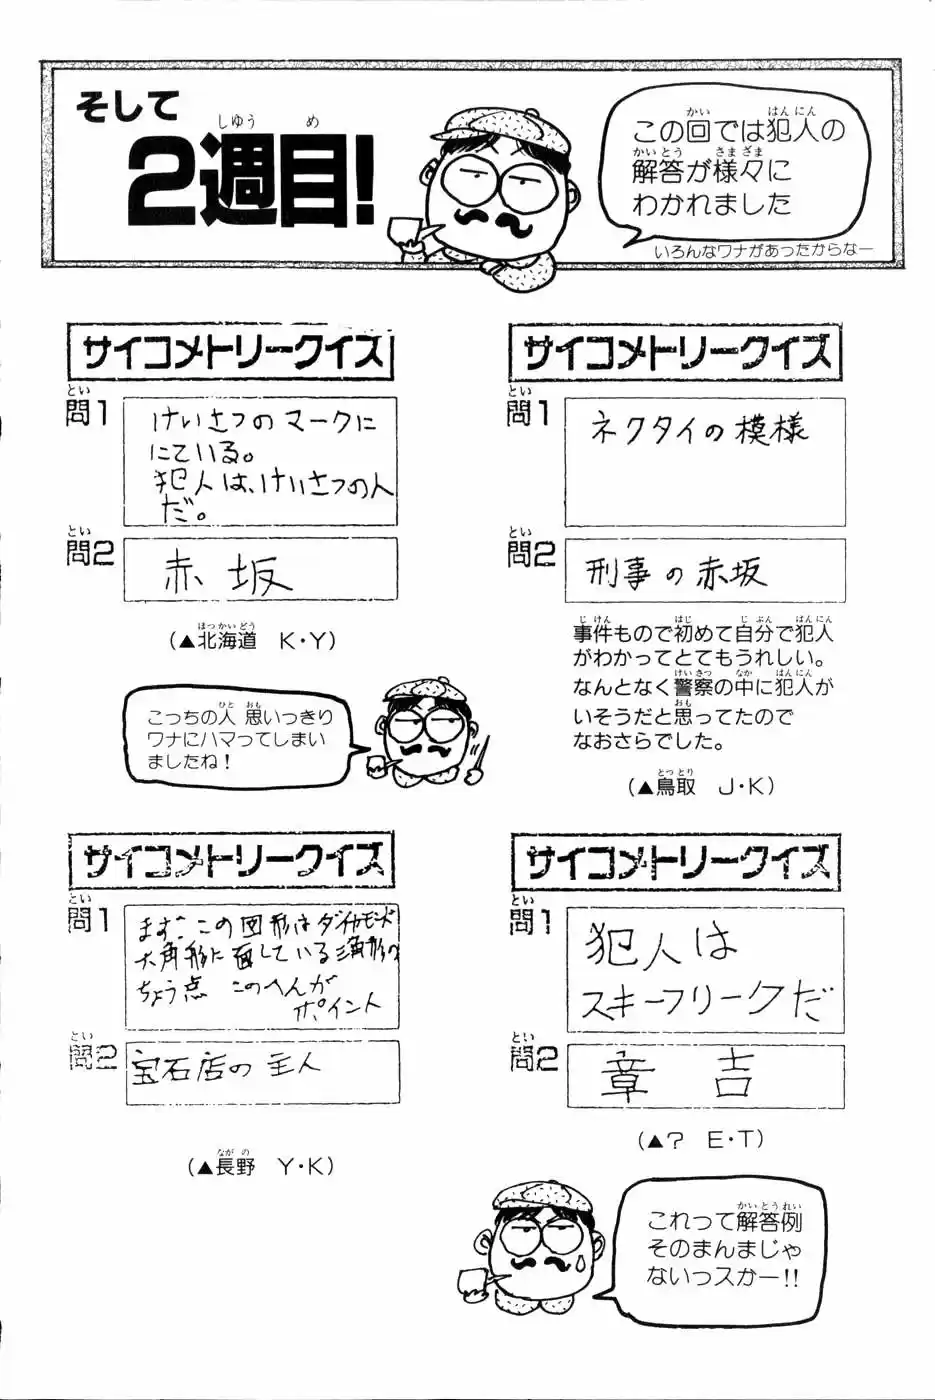 そして
2週目!
この回では犯人の
解答が様々に
わかれました
いろんなワナがあったからなー
サイコメトリークイズ
問1
けいさつのマークに
にている。
犯人は、けいさつの人
だ。
問2
赤坂
(▲北海道 K・Y)
こっちの人 思いっきり
ワナにハマってしまい
ましたね!
サイコメトリークイズ
問1
ネクタイの模様
問2
刑事の赤坂
事件もので初めて自分で犯人
がわかってとてもうれしい。
なんとなく警察の中に犯人が
いそうだと思ってたので
なおさらでした。
(▲鳥取 J・K)
サイコメトリークイズ
問1
まずこの図形はダイヤモンド
六角形に面している三角形の
ちょう点 このへんが
ポイント
問2
宝石店の主人
(▲長野 Y・K)
サイコメトリークイズ
問1
犯人は
スキーフリークだ
問2
章吉
(▲? E・T)
これって解答例
そのまんまじゃ
ないっスかー!!